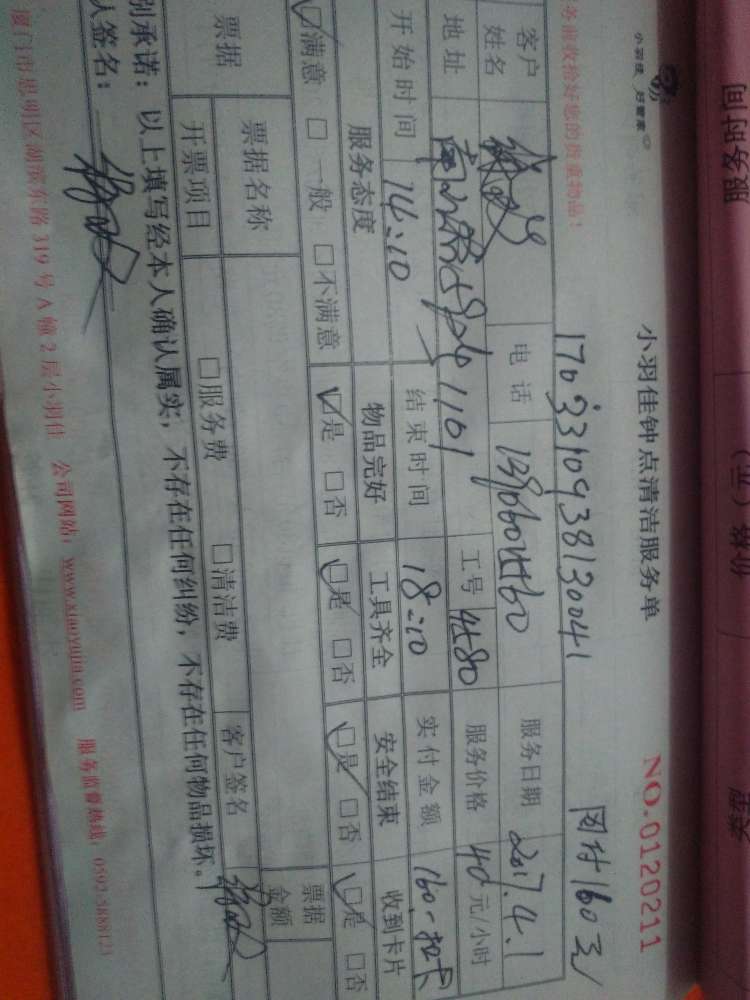 服务时间
价格(元)
小羽佳 好管家
小羽佳钟点清洁服务单
NO.0120211
务前收拾好您的贵重物品!
1703310938130041
160元
客户
姓名
电话
服务日期
2017.4.1
地址
1101
工号
4580
服务价格
40元/小时
开始时间
14:10
结束时间
18:10
实付金额
160
服务态度
物品完好
工具齐全
安全结束
收到卡片
☑满意 □一般 □不满意
☑是 □否
☑是 □否
☑是 □否
☑是 □否
票据
票据名称
票据
金额
开票项目
□服务费 □清洁费
客户签名
别承诺:以上填写经本人确认属实,不存在任何纠纷,不存在任何物品损坏。
人签名:
厦门市思明区湖滨东路319号A幢2层小羽佳 公司网站:www.xiaoyujia.com 服务监督热线:0592-5888123